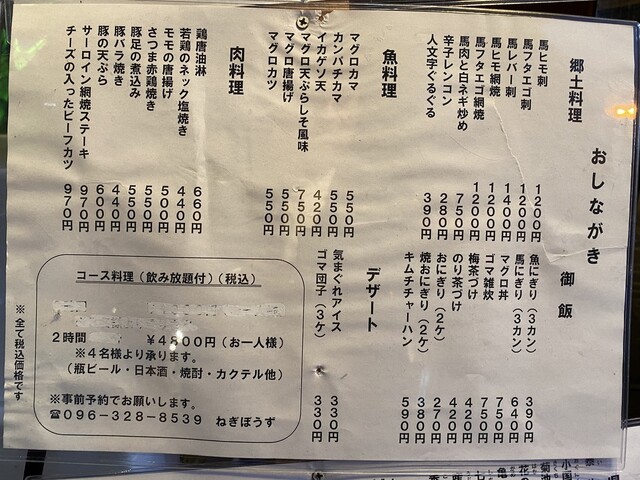 おしながき
郷土料理
馬ヒモ刺 1200円
馬フタエゴ刺 1200円
馬レバー刺 1400円
馬ヒモ網焼 1200円
馬フタエゴ網焼 1200円
馬肉と白ネギ炒め 750円
辛子レンコン 280円
人文字ぐるぐる 390円
魚料理
マグロカマ 550円
カンパチカマ 550円
イカゲソ天 420円
マグロ天ぷらしそ風味 750円
マグロ唐揚げ 550円
マグロカツ 550円
肉料理
鶏唐油淋 660円
若鶏のネック塩焼き 440円
モモの唐揚げ 500円
さつま赤鶏焼き 550円
豚足の煮込み 550円
豚バラ焼き 440円
豚の天ぷら 600円
サーロイン網焼ステーキ 970円
チーズの入ったビーフカツ 970円
御飯
魚にぎり（3カン） 390円
馬にぎり（3カン） 640円
マグロ丼 750円
ゴマ雑炊 750円
梅茶づけ 420円
のり茶づけ 420円
おにぎり（2ケ） 270円
焼おにぎり（2ケ） 380円
キムチチャーハン 590円
デザート
気まぐれアイス 330円
ゴマ団子（3ケ） 330円
コース料理（飲み放題付）（税込）
2時間 ¥4800円（お一人様）
※4名様より承ります。
（瓶ビール・日本酒・焼酎・カクテル他）
※事前予約でお願いします。
☎096-328-8539 ねぎぼうず
※全て税込価格です